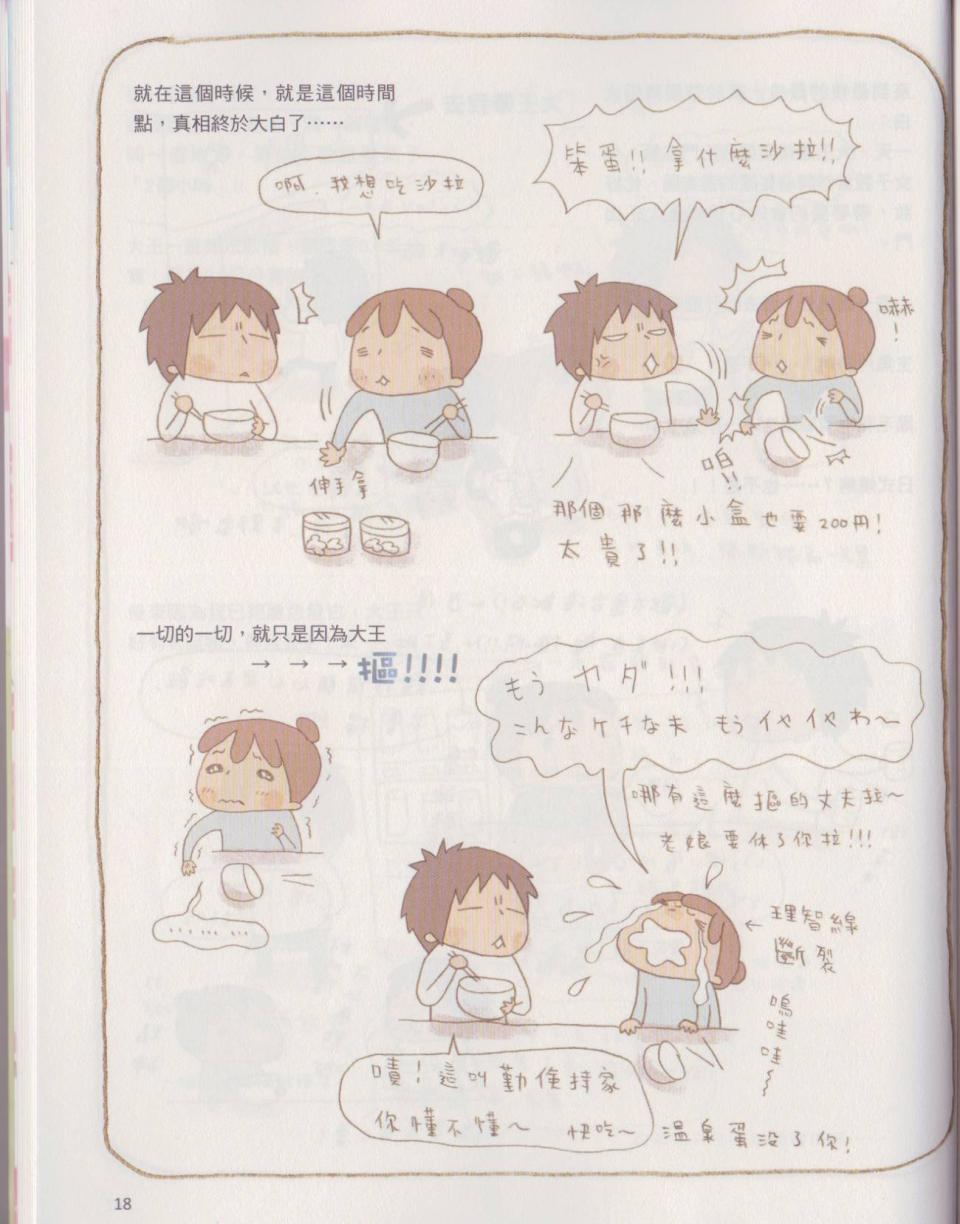 就在這個時候，就是這個時間
點，真相終於大白了⋯⋯
啊、我想吃沙拉
伸手拿
笨蛋!! 拿什麼沙拉!!
嚇!
啪!!
那個那麼小盒也要200円!
太貴了!!
一切的一切，就只是因為大王
→ → → 摳!!!!
⋯⋯⋯
もう ヤダ !!!
こんなケチな夫 もうイヤイヤわ〜
哪有這麼摳的丈夫拉~
老娘要休了你拉!!!
← 理智線
斷裂
嗚哇哇~
嘖! 這叫勤儉持家
你懂不懂~ 快吃~
溫泉蛋沒了你!
18